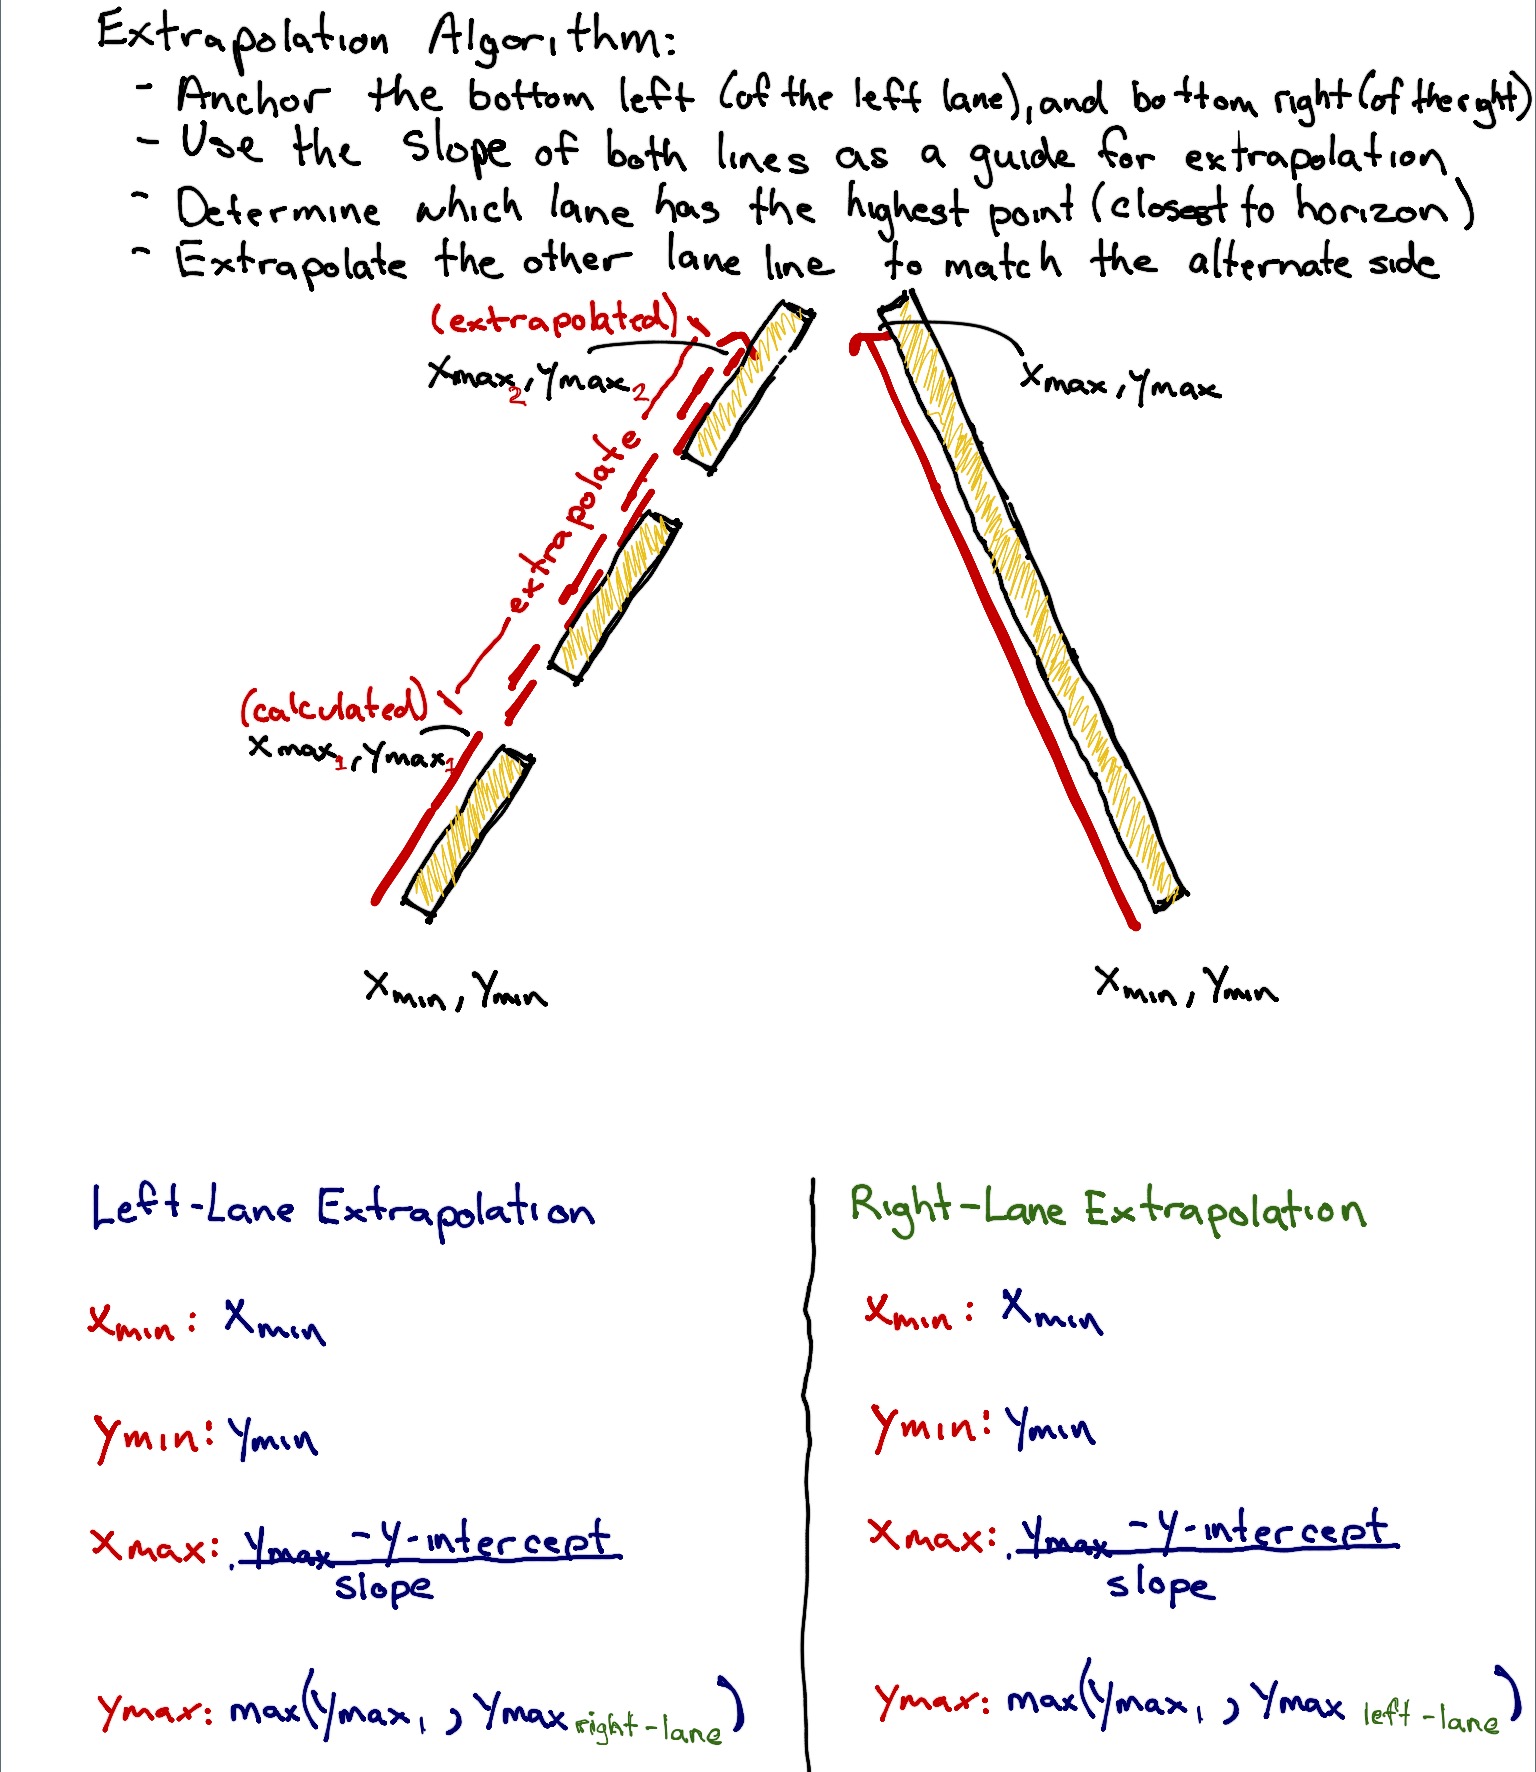 Extrapolation Algorithm:
- Anchor the bottom left (of the left lane), and bottom right (of the right)
- Use the slope of both lines as a guide for extrapolation
- Determine which lane has the highest point (closest to horizon)
- Extrapolate the other lane line to match the alternate side
(extrapolated)
Xmax2, Ymax2
Xmax, Ymax
extrapolate
(calculated)
Xmax1, Ymax1
Xmin, Ymin
Xmin, Ymin
Left-Lane Extrapolation
Right-Lane Extrapolation
Xmin: Xmin
Xmin: Xmin
Ymin: Ymin
Ymin: Ymin
Xmax: Ymax - Y-intercept
slope
Xmax: Ymax - Y-intercept
slope
Ymax: max(Ymax1, Ymax right-lane)
Ymax: max(Ymax1, Ymax left-lane)